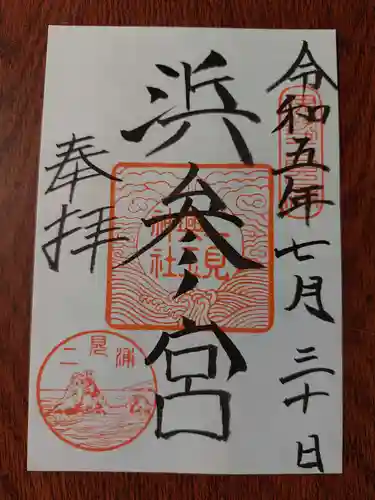 令和五年七月三十日
浜参宮
二見興玉神社
奉拝
二見浦